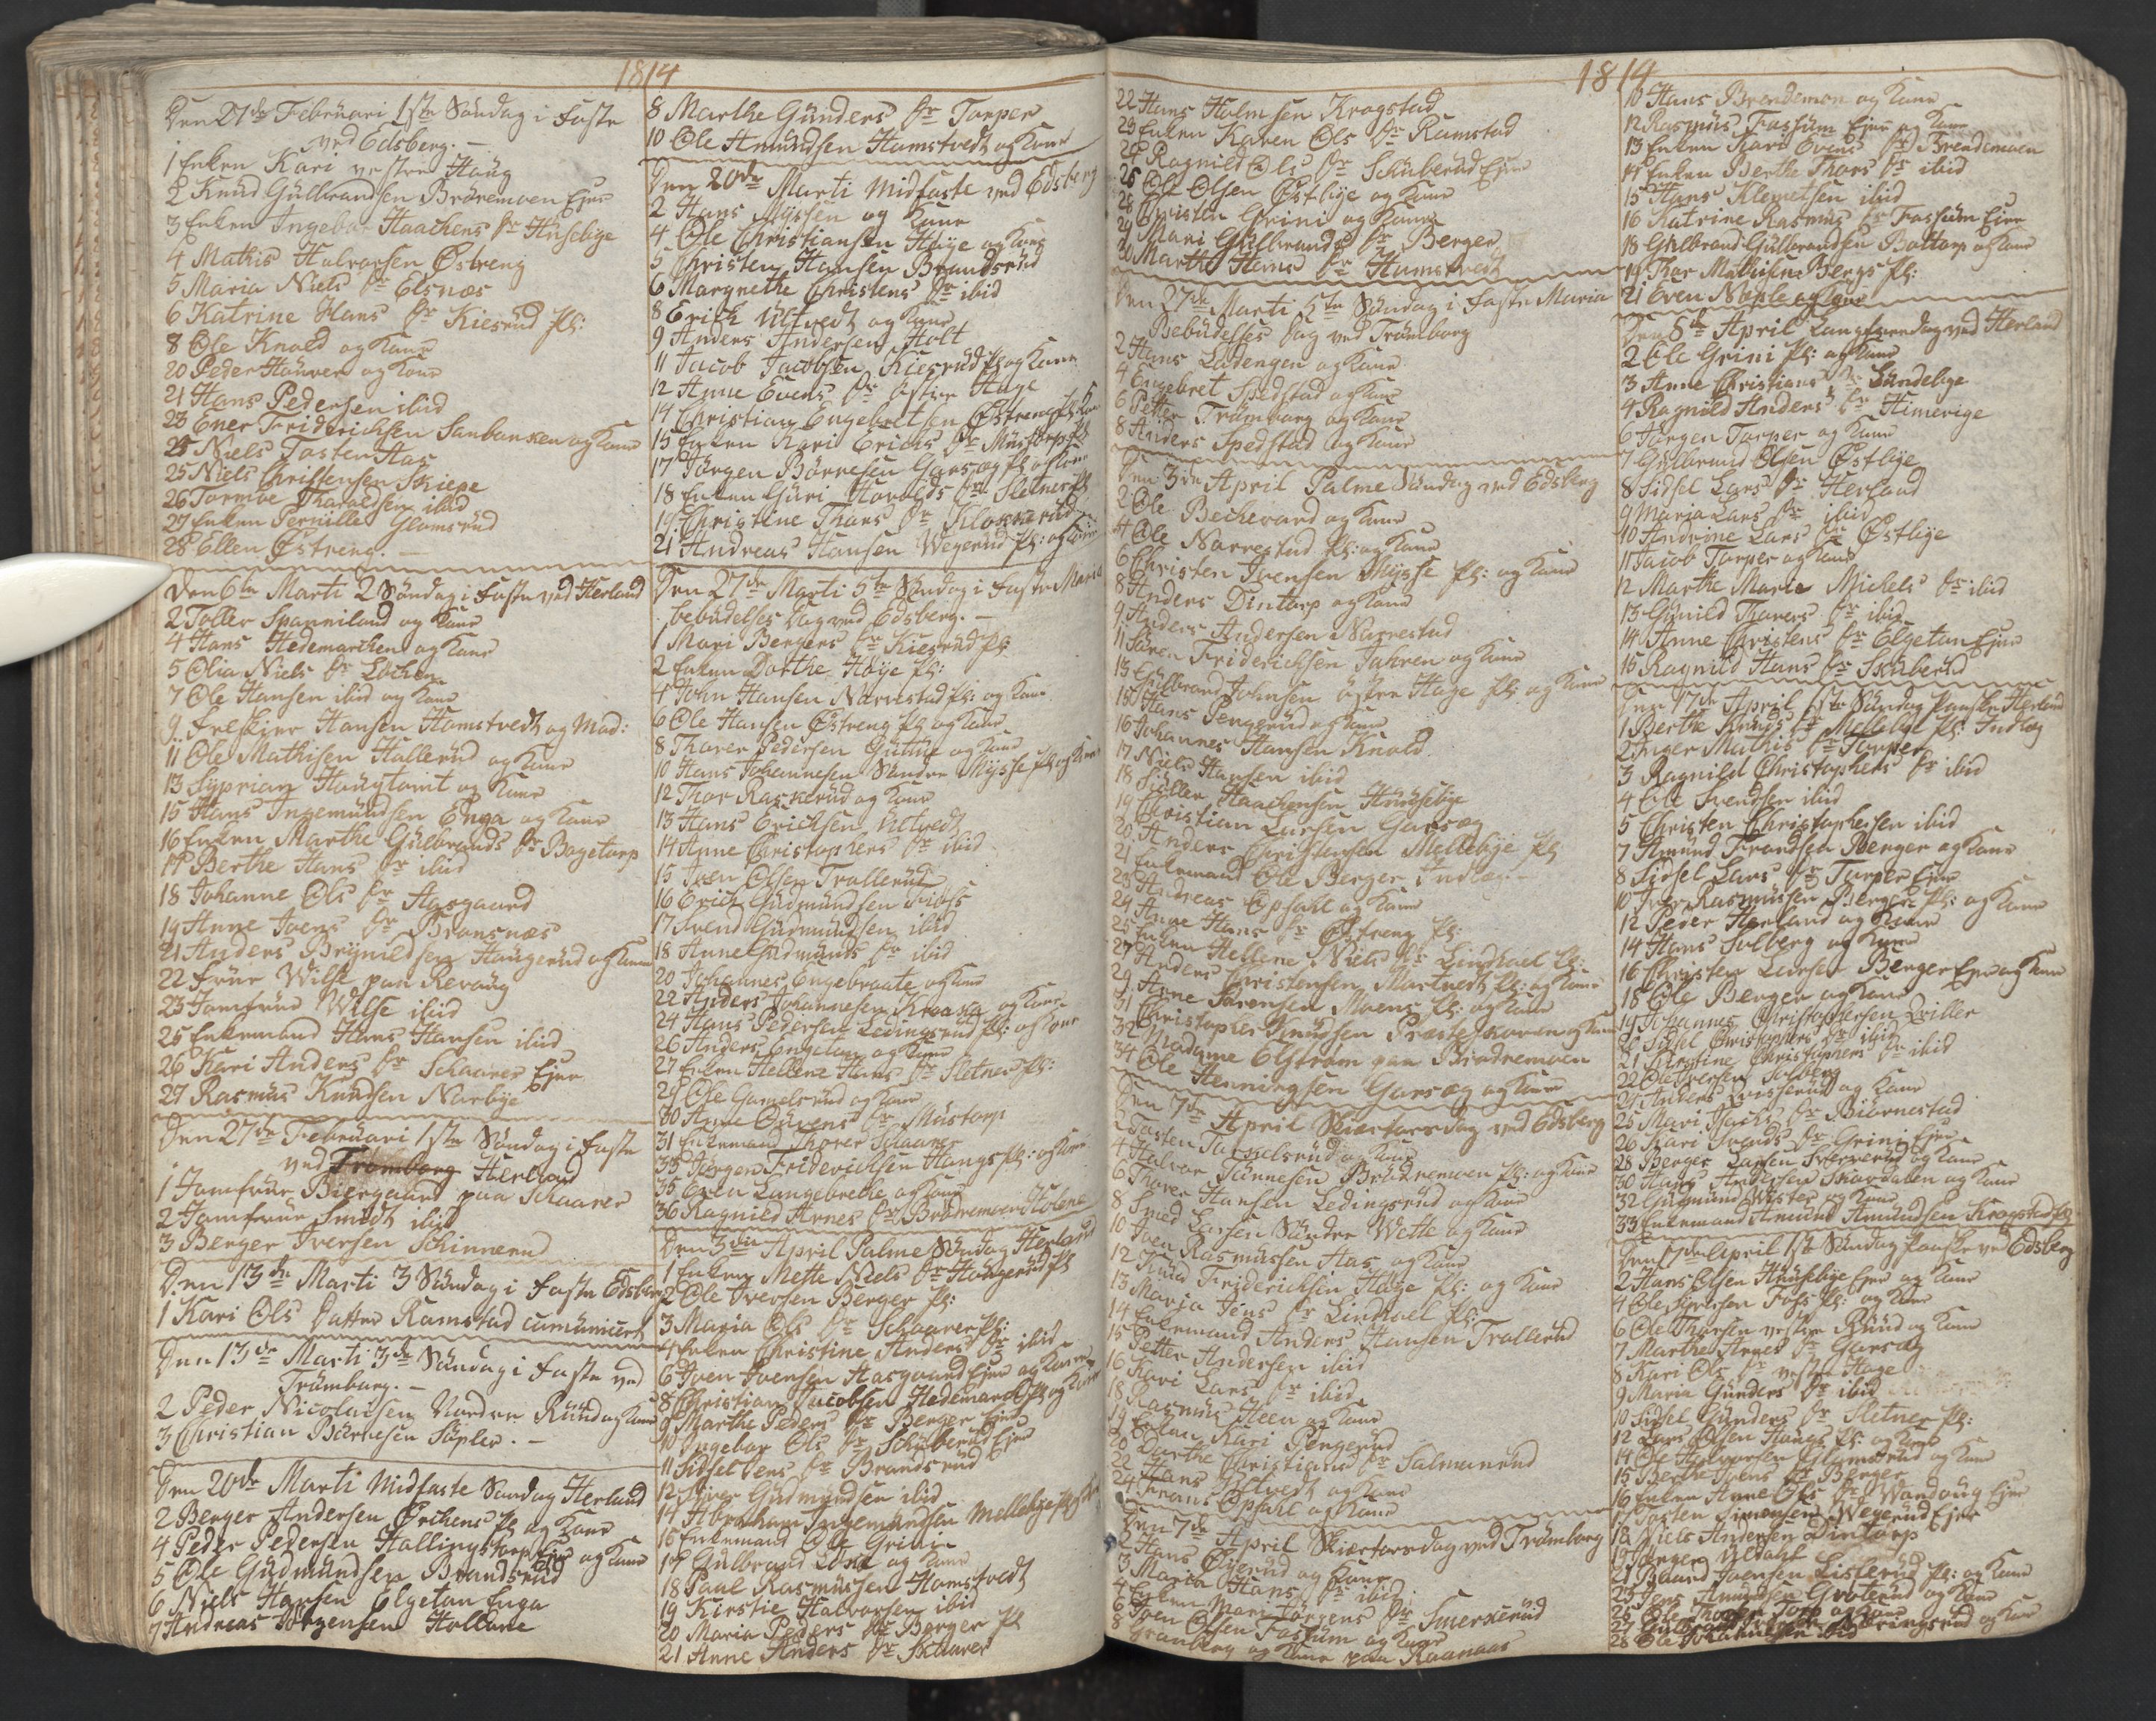 1814
Den 27de Februari 1ste Søndag i Faste
ved Edsberg. —
1 Enken Kari vestre Haug
2 Knud Gulbrandsen Brøremoen Ejer
3 Enken Ingebor Haachens Dr Huselbye
4 Mathis Halvorsen Østreng
5 Maria Niels Dr Elsnæs
6 Katrine Hans Dr Kiesrud Pl:
8 Ole Knold og Kone
20 Peder og Kone
21 Hans Pedersen ibid
23 Ener Friderichsen Sanbanken og Kone
24 Niels Tosten Aas
25 Niels Christensen Skiepe
26 Tormoe Tharaldsen ibid
27 Enken Pernille Glomsrud
28 Ellen Østreng. —
Den 6te Marti 2 Søndag i Faste ved Herland
2 Toller Spanniland og Kone
4 Hans Hedemarchen og Kone
5 Olia Niels Dr Løchen
7 Ole Hansen ibid og Kone
9 Hansen Homstvedt og Mad:
11 Ole Mathisen Hallerud og Kone
13 Syprian Haugtomt og Kone
15 Hans Ingemundsen Enga og Kone
16 Enken Marthe Gulbrands Dr Bøgetorp
17 Berthe Hans Dr ibid
18 Johanne Ols Dr Aasgaard
19 Anne Joens Dr Bransnæs
21 Anders Brynildsen Haugerud og Kone
22 Frue Wilse paa Revaug
23 Jomfrue Wilse ibid
25 Enkemand Hans Hansen ibid
26 Kari Anders Dr Schaarer Ejer
27 Rasmus Knudsen Narbye
Den 27de Februari 1ste Søndag i Faste
ved Tromborg Herland
1 Jomfrue Biergaard paa Schaarer
2 Jomfrue Smidt ibid
3 Berger Iversen Schinnerud
Den 13de Marti 3 Søndag i Faste Edsberg
1 Kari Ols Datter Ramstad cumunicert
Den 13de Marti 3de Søndag i Faste ved
Trømborg. —
2 Peder Nicolaisen Norder Rund og Kone
3 Christian Børresen Supler. —
Den 20de Marti Midfaste Søndag Herland
2 Berger Andersen Ørchens Pl og Kone
4 Peder Pedersen Hallingstorp Ejer og Kone
5 Ole Gudmundsen Brandsrud
6 Niels Hansen Elgetun Enga
7 Andreas Jørgensen Hollene
8 Marthe Gunders Dr Torper
10 Ole Amundsen Homstvedt og Kone
Den 20de Marti Midfaste ved Edsberg
2 Hans Myssen og Kone
4 Ole Christiansen Hage og Kone
5 Christen Hansen Brandsrud
6 Margrethe Christens Dr ibid
8 Erich Ultvedt og Kone
9 Anders Andersen Holt
11 Jacob Jacobsen Kiesrud Pl og Kone
12 Anne Evens Dr østre Hage
14 Christian Engebretsen Østreng Pl Kone
15 Enken Kari Erichs Dr Mustorp Pl
17 Jørgen Børresen Garseg Pl og Kone
18 Enken Guri Haralds Dr Sletner Pl
19 Christine Thors Dr Klokkerud
21 Andreas Hansen Wegerud Pl: og Kone
Den 27de Marti 5te Søndag i Faste Maria
bebudelses Dag ved Edsberg. —
1 Mari Bergers Dr Kiesrud Pl
2 Enken Dorthe Høye Pl:
4 John Hansen Narrestad Pl: og Kone
6 Ole Hansen Østreng Pl og Kone
8 Thorer Pedersen Gutue og Kone
10 Hans Johannesen Søndre Mysse Pl og Kone
12 Thor Raskerud og Kone
13 Hans Erichsen Ultvedt
14 Anne Christophers Dr ibid
15 Iver Olsen Trollerud
16 Erich Gudmundsen Fos
17 Svend Gudmundsen ibid
18 Anne Gudmunds Dr ibid
20 Johannes Engebraate og Kone
22 Anders Johannesen Kraasa og Kone
24 Hans Pedersen Ledingsrud Pl: og Kone
26 Anders Engetun og Kone
27 Enken Hellene Hans Dr Sletner Pl:
29 Ole Gamelsrud og Kone
30 Anne Ourens Dr Mustorp
31 Enkemand Thorer Schaarer
33 Jørgen Friderichsen Haugs Pl: og Kone
35 Even Langebrekke og Kone
36 Ragnild Arnes Dr Brødremoen Holene
Den 3die April Palme Søndag Herland
1 Enken Mette Niels Dr Haugerud Pl
2 Ole Iversen Berger Pl:
3 Maria Ols Dr Schaarer Pl:
4 Enken Christine Anders Dr ibid
6 Joen Joensen Aasgaard Ejer og Kone
8 Christian Jacobsen Hedemarch Pl og Kone
9 Marthe Peders Dr Berger Ejer
10 Ingebor Ols Dr Schuberud Ejer
11 Sidsel Jens Dr Brandsrud
12 Iver Gudmundsen ibid
14 Abraham Ingemundsen Mellebye Pl og Kone
15 Enkemand Ole Grini
17 Gulbrand Lund og Kone
18 Paul Rasmussen Homstvedt
19 Kirstie Halvorsen ibid
20 Maria Peders Dr Berger Pl
21 Anne Anders Dr Skaarer
1814
22 Hans Holmsen Krogstad
23 Enken Karen Ols Dr Ramstad
24 Ragnild Ols Dr Schuberud Ejer
26 Ole Olsen Østbye og Kone
28 Christen Grini og Kone
29 Mari Gulbrands Dr Berger
30 Marthe Hans Dr Humstvedt
Den 27de Marti 5te Søndag i Faste Maria
Bebudelses Dag ved Trømborg
2 Hans Ladengen og Kone
4 Engebret Spedstad og Kone
6 Petter Trømborg og Kone
8 Anders Spedstad og Kone
Den 3die April Palme Søndag ved Edsberg
2 Ole Bechevard og Kone
4 Ole Narrestad Pl: og Kone
6 Christen Svensen Mysse Pl: og Kone
8 Anders Dintorp og Kone
9 Anders Andersen Narrestad
11 Søren Friderichsen Jahren og Kone
13 Gulbrand Johnsen østre Hage Pl: og Kone
15 Hans Pengerud og Kone
16 Johannes Hansen Knold
17 Niels Hansen ibid
18 Haachensen Huuselbye
19 Christian Larsen Garseg
20 Anders Christensen Mellebye Pl
21 Enkemand Ole Berger Indleg. —
23 Andreas Opsahl og Kone
24 Anne Hans Dr Østreng Pl:
25 Enken Hellene Niels Dr Lindhoel Pl:
27 Anders Christensen Martvedt Pl: og Kone
29 Arne Sørensen Moens Pl: og Kone
31 Christopher Knudsen Præsteskoven og Kone
32 Madame Elstrøm paa Brødremoen
34 Ole Henningsen Garseg og Kone
Den 7de April Skiertorsdag ved Edsberg
2 Tosten Taraldsrud og Kone
4 Halvor Tønnesen Brødremoen Pl: og Kone
6 Thorer Hansen Ledingsrud og Kone
8 Smed Larsen Søndre Wette og Kone
10 Joen Rasmussen Aas og Kone
12 Knud Friderichsen Hage Pl: og Kone
13 Maria Jens Dr Lindhoel Pl:
14 Enkemand Anders Hansen Trollerud
15 Petter Andersen ibid
16 Kari Lars Dr ibid
18 Rasmus Heen og Kone
19 Enken Kari Pengerud
20 Dorthe Christians Dr Salmonrud
22 Hans Ultvedt og Kone
24 Frans Opsahl og Kone
Den 7de April Skiertorsdag ved Trømborg
2 Hans Øyerud og Kone
3 Maria Hans Dr ibid
4 Enken Mari Jørgens Dr Smerkerud
6 Joen Olsen Fossum og Kone
8 Granberg og Kone paa Raanaas
10 Hans Brendemoen og Kone
12 Rasmus Fossum Ejer og Kone
13 Enken Kari Evens Dr Brendemoen
14 Enken Berthe Thors Dr ibid
15 Hans Klemetsen ibid
16 Katrine Rasmus Dr Fossum Ejer
18 Gulbrand Gulbrandsen Buttorp og Kone
19 Thor Mathisen Bergs Pl:
21 Even Nople og Kone
Den 8de April Langfreedag ved Herland
2 Ole Grini Pl: og Kone
3 Anne Christians Dr Sundebye
4 Ragnild Anders Dr Himerige
6 Jørgen Torper og Kone
7 Gulbrand Olsen Østbye
8 Sidsel Lars Dr Herland
9 Maria Lars Dr ibid
10 Andrine Lars Dr Østbye
11 Jacob Torper og Kone
12 Marthe Marie Michels Dr ibid
13 Gunild Thorers Dr ibid
14 Anne Christens Dr Elgetun Ejer
15 Ragnild Hans Dr Skuberud
Den 17de April 1ste Søndag Paaske Herland
1 Berthe Knuds Dr Mellebye Pl: Indleg
2 Inger Mathis Dr Torper
3 Ragnild Christophers Dr ibid
4 Ole Svendsen ibid
5 Christen Christophersen ibid
7 Amund Frandsen Berger og Kone
8 Sidsel Lars Dr Torper Ejer
10 Iver Rasmussen Berger Pl: og Kone
12 Peder Herland og Kone
14 Hans Solberg og Kone
16 Christen Larsen Berger Ejer og Kone
18 Ole Berger og Kone
19 Johannes Christophersen Qviller
20 Sidsel Christophers Dr ibid
21 Kirstine Christophers Dr ibid
22 Ole Iversen Solberg
24 Anders og Kone
25 Mari Jsachs Dr Biørnestad
26 Kari Svends Dr Grini Ejer
28 Berger Larsen og Kone
30 Hans Andersen og Kone
32 Gudmund Wister og Kone
33 Enkemand Amund Amundsen Krogstad Pl
Den 17de April 1ste Søndag Paaske ved Edsberg
2 Hans Olsen Huuselbye Ejer og Kone
4 Ole Fos Pl: og Kone
6 Ole Thorsen vestre Rund og Kone
7 Marthe Arnes Dr Garseg
8 Kari Ols Dr vestre Hage
9 Maria Gunders Dr ibid
10 Sidsel Gunders Dr Sletner Pl:
12 Lars Olsen Haugs Pl: og Kone
14 Ole Halvorsen Glomsrud og Kone
15 Berthe Joens Dr Berger
16 Enken Anne Ols Dr Wandoug Ejer
17 Tosten Simonsen Wegerud Ejer
18 Niels Andersen Dintorp
19 Berger
21 Baard Joensen Listerud Pl: og Kone
23 Jens Amundsen Groterud og Kone
25 Ole Thorer Torp og Kone